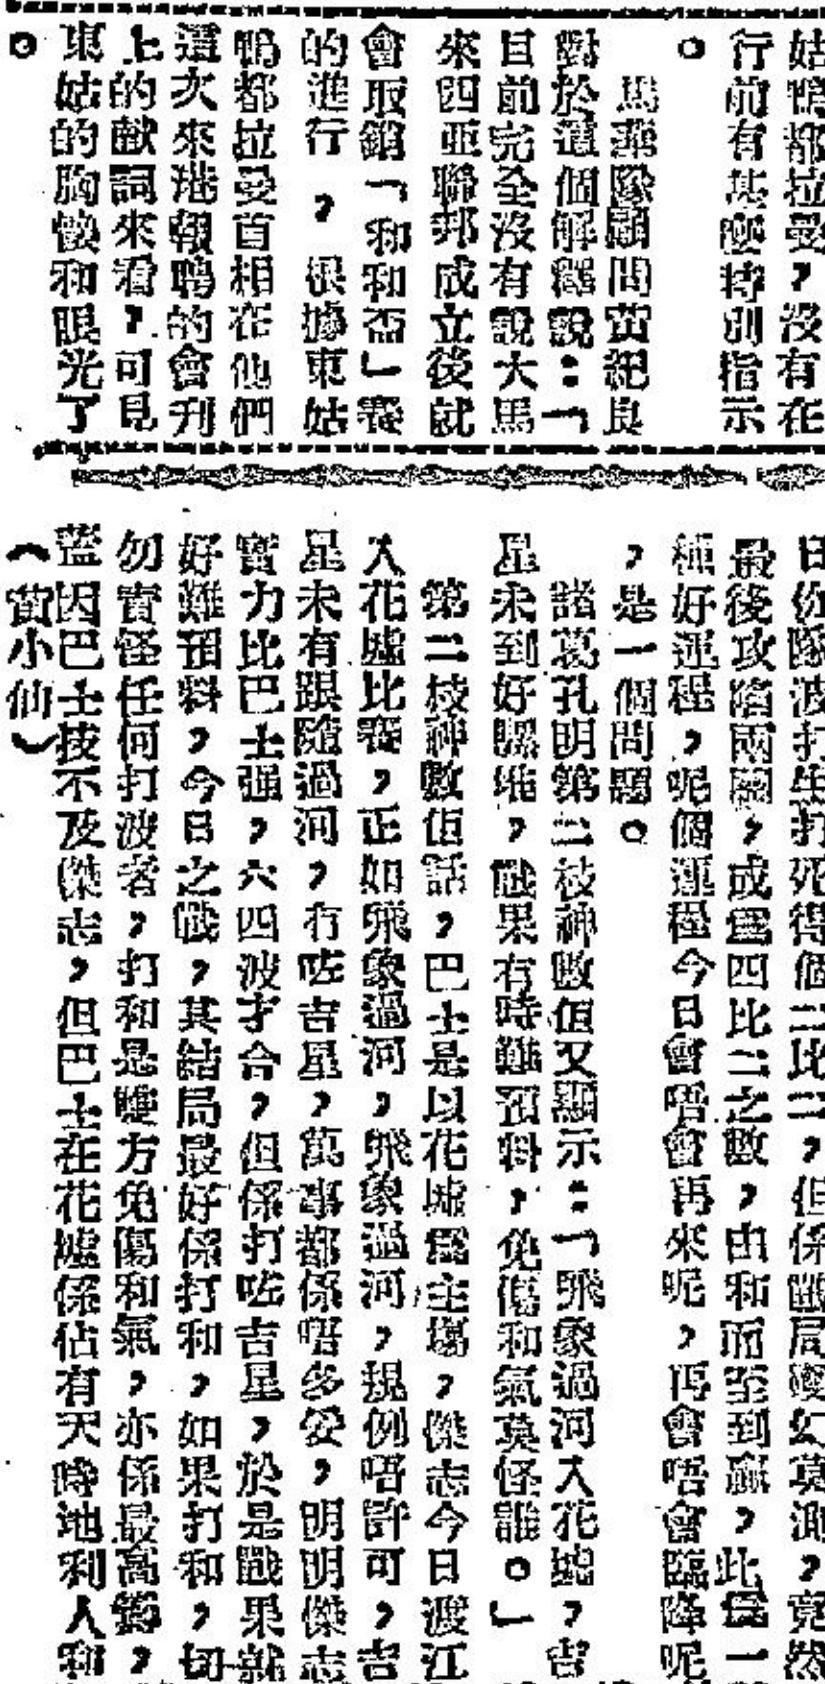 姑鴨都拉曼，沒有在
行前有甚麼特別指示
。
馬華隊顧問黃紀良
對於這個解釋說：「
目前完全沒有說大馬
來西亞聯邦成立後就
會取銷「和和盃」賽
的進行，根據東姑
鴨都拉曼首相在他們
這次來港報聘的會刊
上的獻詞來看，可見
東姑的胸懷和眼光了
。
日你隊波打生打死得個二比二，但係戰局變幻莫測，竟然
最後攻陷兩關，成為四比二之數，由和而至到贏，此為一
種好運程，呢個運程今日會唔會再來呢，再會唔會臨降呢
，是一個問題。
諸葛孔明第二枝神數佢又顯示：「飛象過河入花墟，吉
星未到好騷堆，戰果有時難預料，免傷和氣莫怪誰。」
第二枝神數佢話，巴士是以花墟為主場，傑志今日渡江
入花墟比賽，正如飛象過河，飛象過河，規例唔許可，吉
星未有跟隨過河，冇咗吉星，萬事都係唔多妥，明明傑志
實力比巴士強，六四波才合，但係打咗吉星，於是戰果就
好難預料，今日之戰，其結局最好係打和，如果打和，切
勿責怪任何打波者，打和是雙方免傷和氣，亦係最高籌，
蓋因巴士技不及傑志，但巴士在花墟係佔有天時地利人和
（黃小仙）